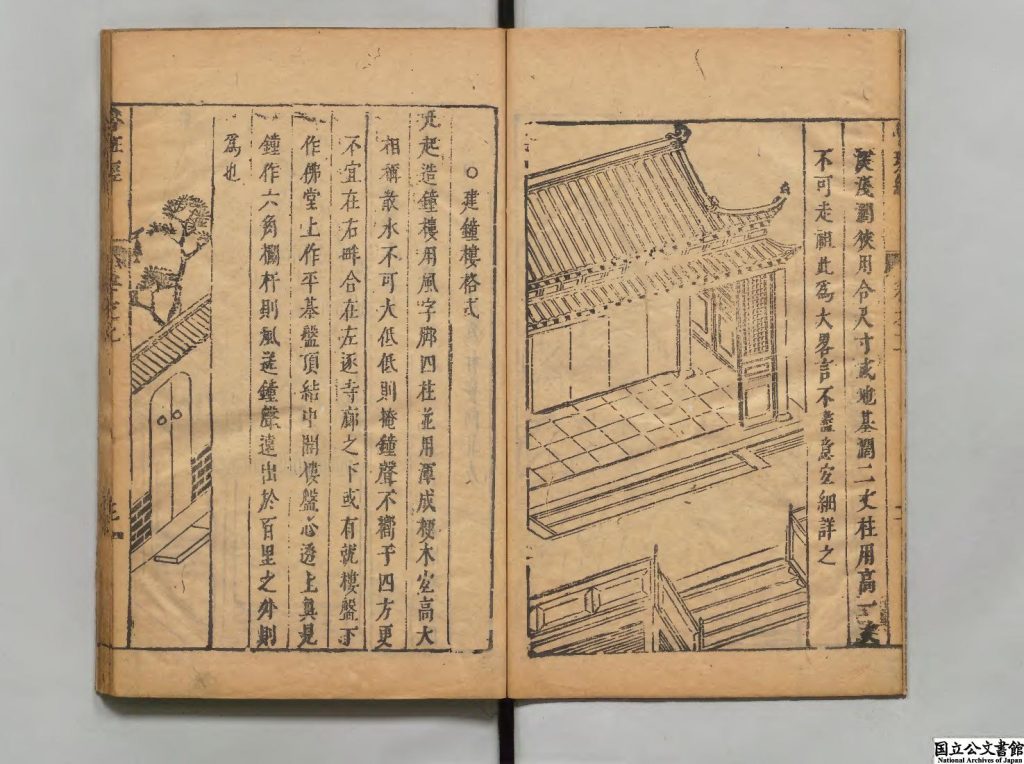 淺濶狹用合尺寸或地基濶二丈柱用高一丈
不可走祖此爲大畧言不盡意宜細詳之
○建鐘樓格式
凡起造鐘樓用風字脚四柱並用渾成梗木宜高大
相稱散水不可大低低則掩鐘聲不嚮于四方更
不宜在右畔合在左逐寺廊之下或有就樓盤下
作佛堂上作平基盤頂結中開樓盤心透上眞見
鐘作六角欄杆則風送鐘聲遠出於百里之外則
爲也
魯班經
国立公文書館
National Archives of Japan